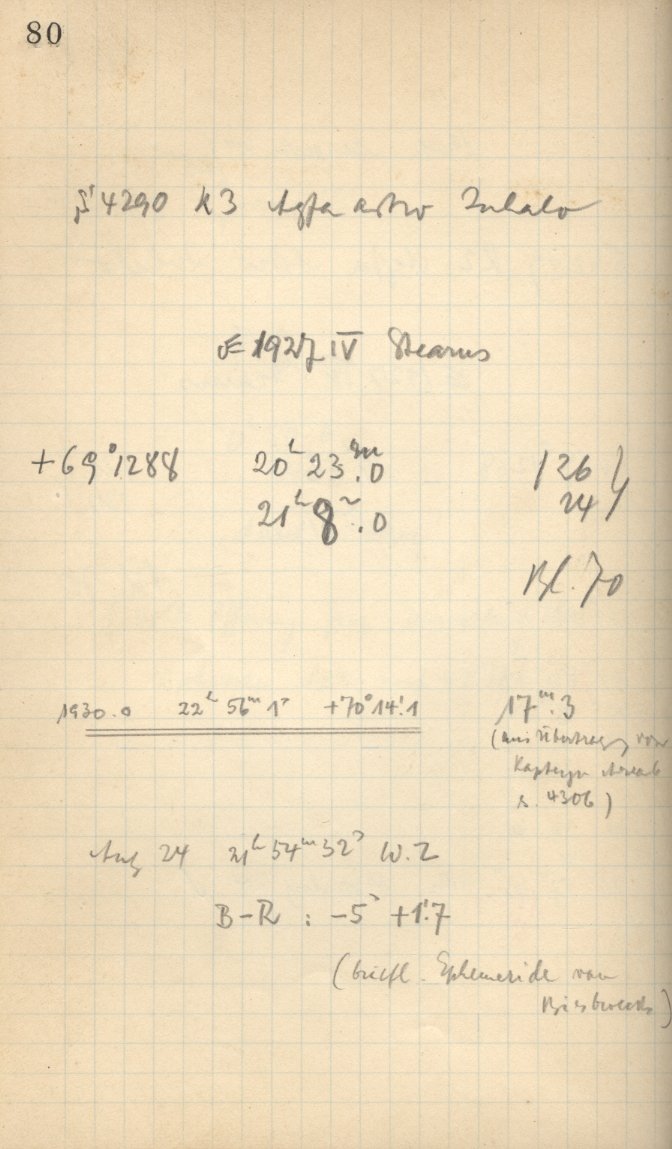 80
S 4290 K3 Agfa astro Inhalo
☄ 1927 IV Stearns
+69°1288 20ʰ 23ᵐ.0 126
21ʰ 8ᵐ.0 24
Bl. 70
1930.0 22ʰ 56ᵐ 1ˢ +70°14'.1 17ᵐ.3
(aus Übertragg von
Kapteyn Areal
S. 4306)
Aug 24 21ʰ 54ᵐ 32ˢ W.Z
B-R : -5ˢ +1'.7
(briefl. Ephemeride von
Biesbroeck)